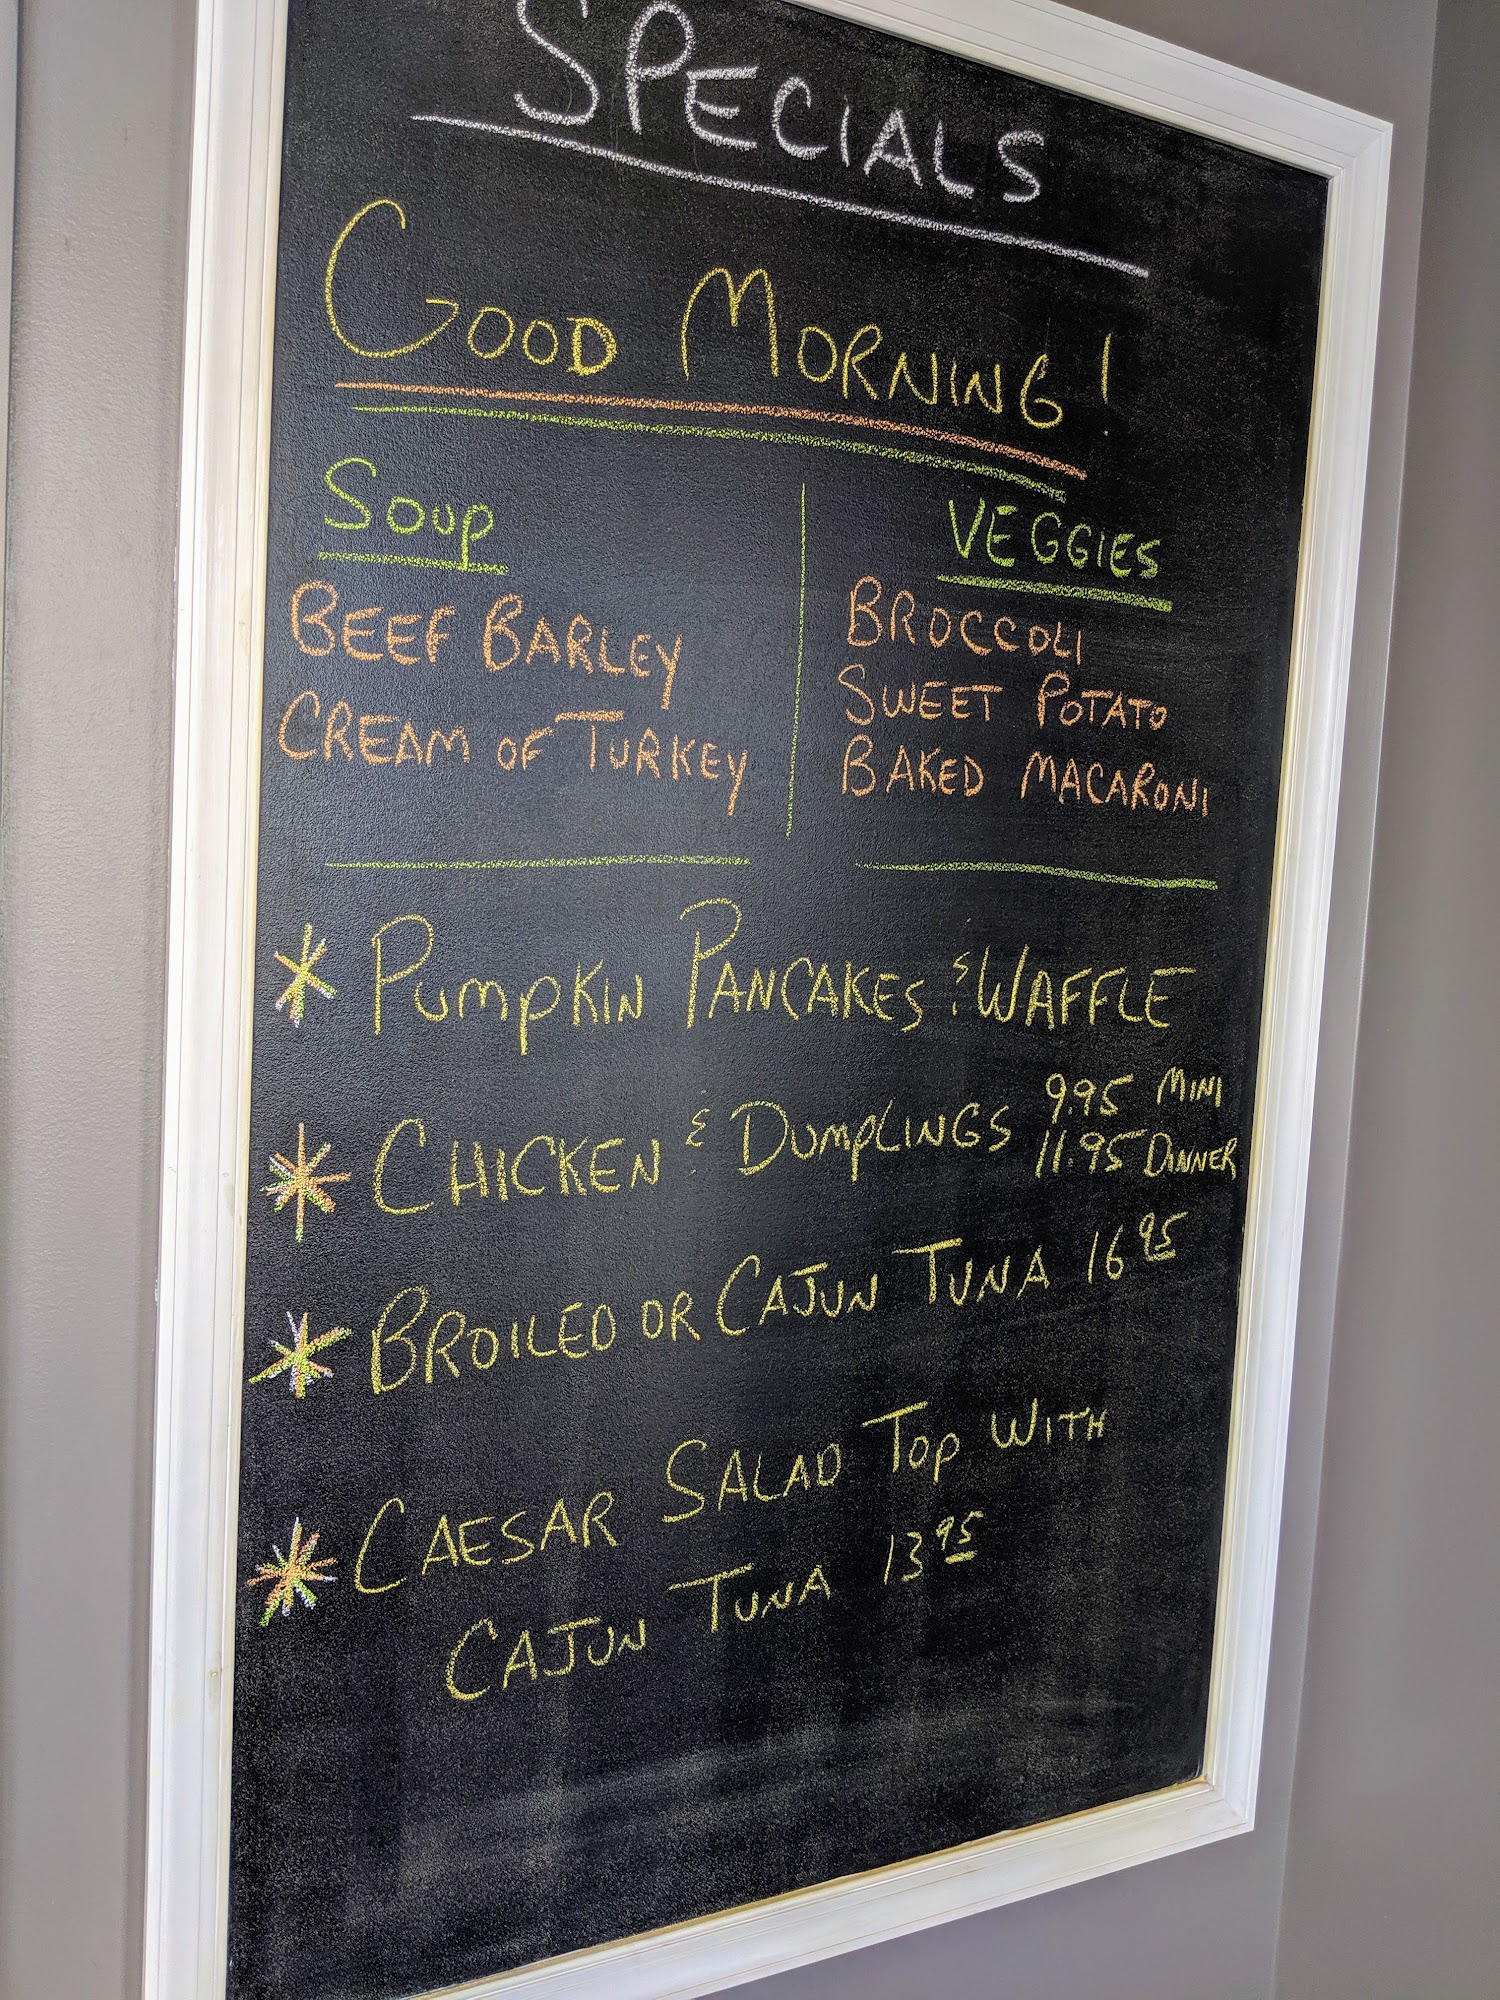 SPECIALS
GOOD MORNING!
Soup
BEEF BARLEY
CREAM OF TURKEY
VEGGIES
BROCCOLI
SWEET POTATO
BAKED MACARONI
* PUMPKIN PANCAKES & WAFFLE
* CHICKEN & DUMPLINGS 9.95 MINI
11.95 DINNER
* BROILED OR CAJUN TUNA 16 95
* CAESAR SALAD TOP WITH
CAJUN TUNA 13 95